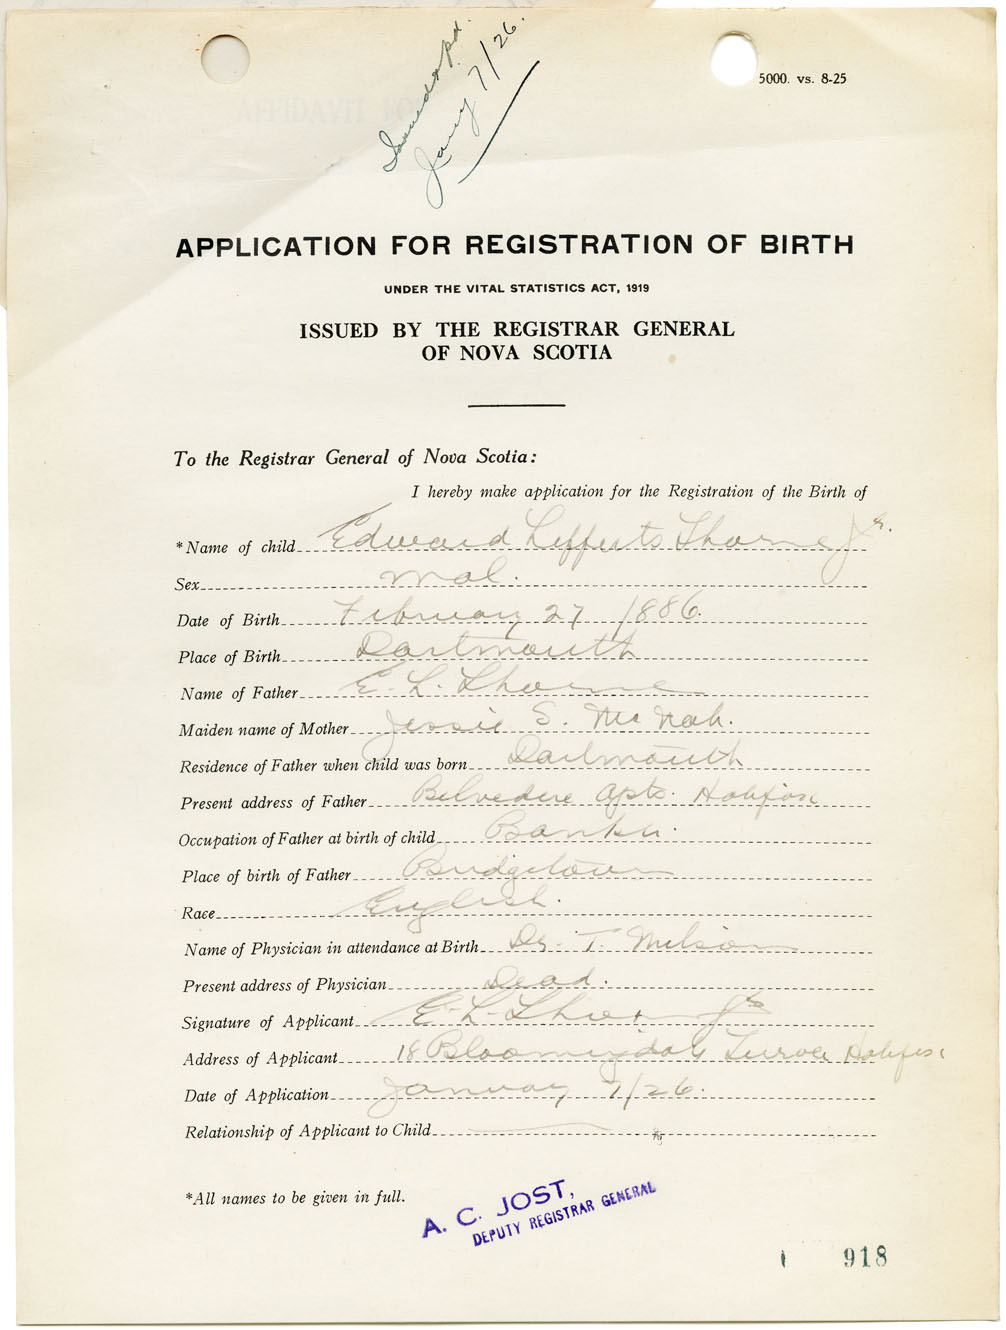 Issued & pd.
Jany 7/26.
5000. vs. 8-25
AFFIDAVIT FO
APPLICATION FOR REGISTRATION OF BIRTH
UNDER THE VITAL STATISTICS ACT, 1919
ISSUED BY THE REGISTRAR GENERAL
OF NOVA SCOTIA
To the Registrar General of Nova Scotia:
I hereby make application for the Registration of the Birth of
*Name of child Edward Lefferts Thorne Jr.
Sex Mal.
Date of Birth February 27 1886.
Place of Birth Dartmouth
Name of Father E. L. Thorne
Maiden name of Mother Jessie S. McNab.
Residence of Father when child was born Dartmouth
Present address of Father Belvedere Apts. Halifax
Occupation of Father at birth of child Banker.
Place of birth of Father Bridgetown
Race English.
Name of Physician in attendance at Birth Dr. T. Milsom
Present address of Physician Dead.
Signature of Applicant E. L. Thorne Jr
Address of Applicant 18 Bloomingdale Terrace Halifax
Date of Application January 7/26.
Relationship of Applicant to Child
*All names to be given in full.
A. C. JOST,
DEPUTY REGISTRAR GENERAL
918